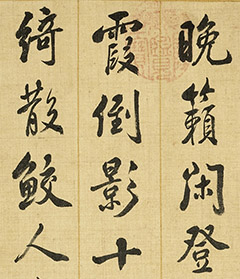 晚籟閑登
霞倒影十
綺散鮫人